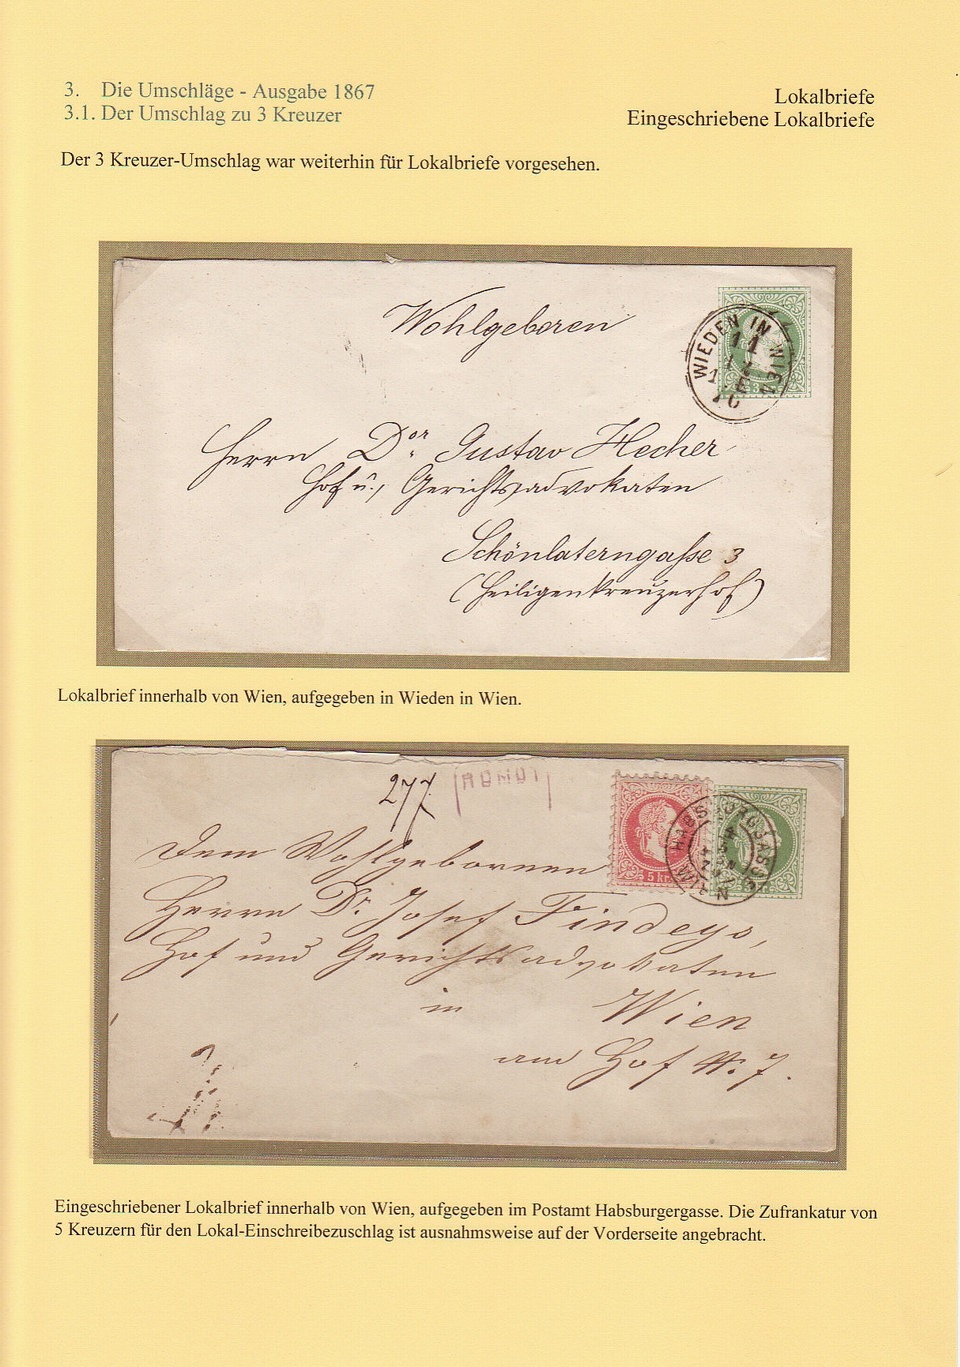 3. Die Umschläge - Ausgabe 1867
3.1. Der Umschlag zu 3 Kreuzer
Lokalbriefe
Eingeschriebene Lokalbriefe
Der 3 Kreuzer-Umschlag war weiterhin für Lokalbriefe vorgesehen.
Wohlgeboren
WIEDEN IN WIEN
11
Herrn Dor Gustav Hecher
Hof u. Gerichtsadvokaten
Schönlaterngasse 3
(Heiligenkreuzerhof)
Lokalbrief innerhalb von Wien, aufgegeben in Wieden in Wien.
277
5 kr.
Dem Wohlgebornen
Herrn Dr. Josef
Hof und Gerichtsadvokaten
in Wien
am Hof No. 7.
Eingeschriebener Lokalbrief innerhalb von Wien, aufgegeben im Postamt Habsburgergasse. Die Zufrankatur von
5 Kreuzern für den Lokal-Einschreibezuschlag ist ausnahmsweise auf der Vorderseite angebracht.